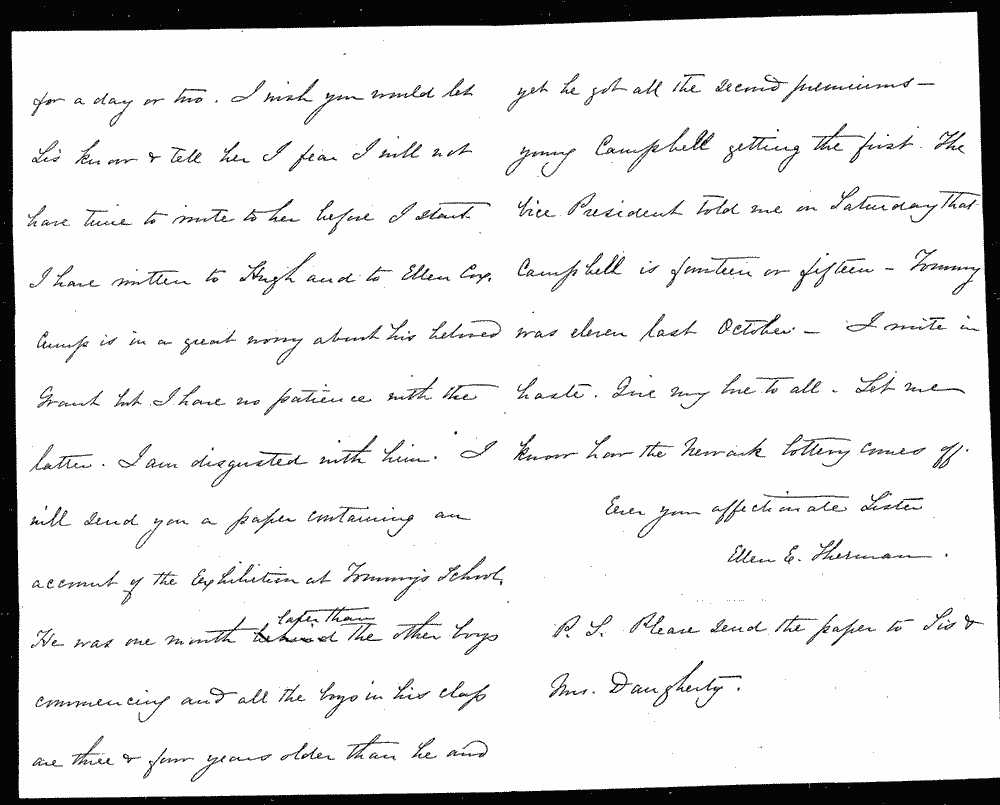 for a day or two. I wish you would let
Sis know & tell her I fear I will not
have time to write to her before I start
I have written to Hugh and to Ellen Cox.
Cump is in a great worry about his beloved
Grant but I have no patience with the
latter. I am disgusted with him. I
will send you a paper containing an
account of the Exhibition at Tommy's School.
later than
He was one month behind the other boys
commencing and all the boys in his class
are three & four years older than he and
yet he got all the second premiums —
young Campbell getting the first. The
Vice President told me on Saturday that
Campbell is fourteen or fifteen — Tommy
was eleven last October — I write in
haste. Give my love to all. Let me
know how the Newark lottery comes off.
Ever your affectionate Sister
Ellen E. Sherman.
P. S. Please send the paper to Sis &
Mrs. Daugherty.